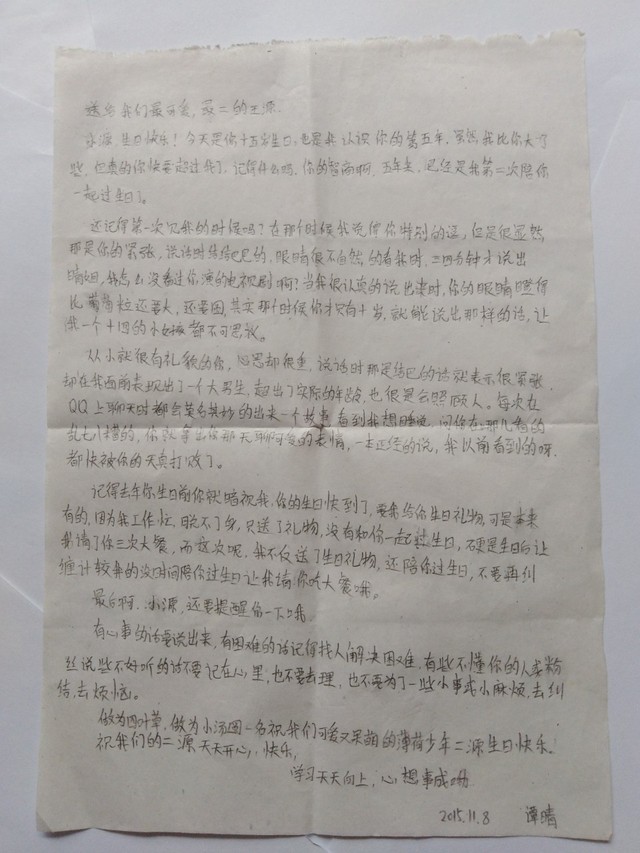 送给我们最可爱,最二的王源.
小源 生日快乐!今天是你十五岁生日,也是我认识你的第五年.虽然我比你大了
些,但真的你快要超过我了,记得什么吗,你的智商啊,五年来,已经是我第二次陪你
一起过生日了。
还记得第一次见我的时候吗?在那个时候我觉得你特别的逗,但是很显然,
那是你的紧张,说话时结结巴巴的,眼睛很不自然的看我时,三四分钟才说出
晴姐,我怎么没看过你演的电视剧啊?当我很认真的说出来时,你的眼睛瞪得
比葡萄粒还要大,还要圆,其实那个时候你才只有十岁,就能说出那样的话,让
我一个十四的小女孩都不可思议。
从小就很有礼貌的你,心思却很重,说话时那是结巴的话就表示很紧张.
却在我面前表现出了一个大男生,超出了实际的年龄,也很是会照顾人。每次在
QQ上聊天时都会莫名其妙的出来一个故事 看到我想睡觉,问你在哪儿看的
乱七八糟的,你就拿出你那天聊可爱的表情,一本正经的说,我以前看到的呀.
都快被你的天真打败了。
记得去年你生日前你就暗视我,你的生日快到了,要我给你生日礼物,可是本来
有的,因为我工作忙,脱不了身,只送了礼物,没有和你一起过生日,硬是生日后让
我请了你三次大餐,而这次呢,我不仅送了生日礼物,还陪你过生日,不要再纠
缠计较我的没时间陪你过生日让我请你吃大餐哦。
最后啊,小源,还要提醒你一下哦.
有心事的话要说出来,有困难的话记得找人解决困难,有些不懂你的人或粉
丝说些不好听的话不要记在心里,也不要去理,也不要为了一些小事或小麻烦,去纠
结,去烦恼。
做为四叶草,做为小汤圆一名祝我们可爱又呆萌的薄荷少年二源生日快乐.
祝我们的二源天天开心,快乐,
学习天天向上,心想事成哟
2015.11.8 谭晴